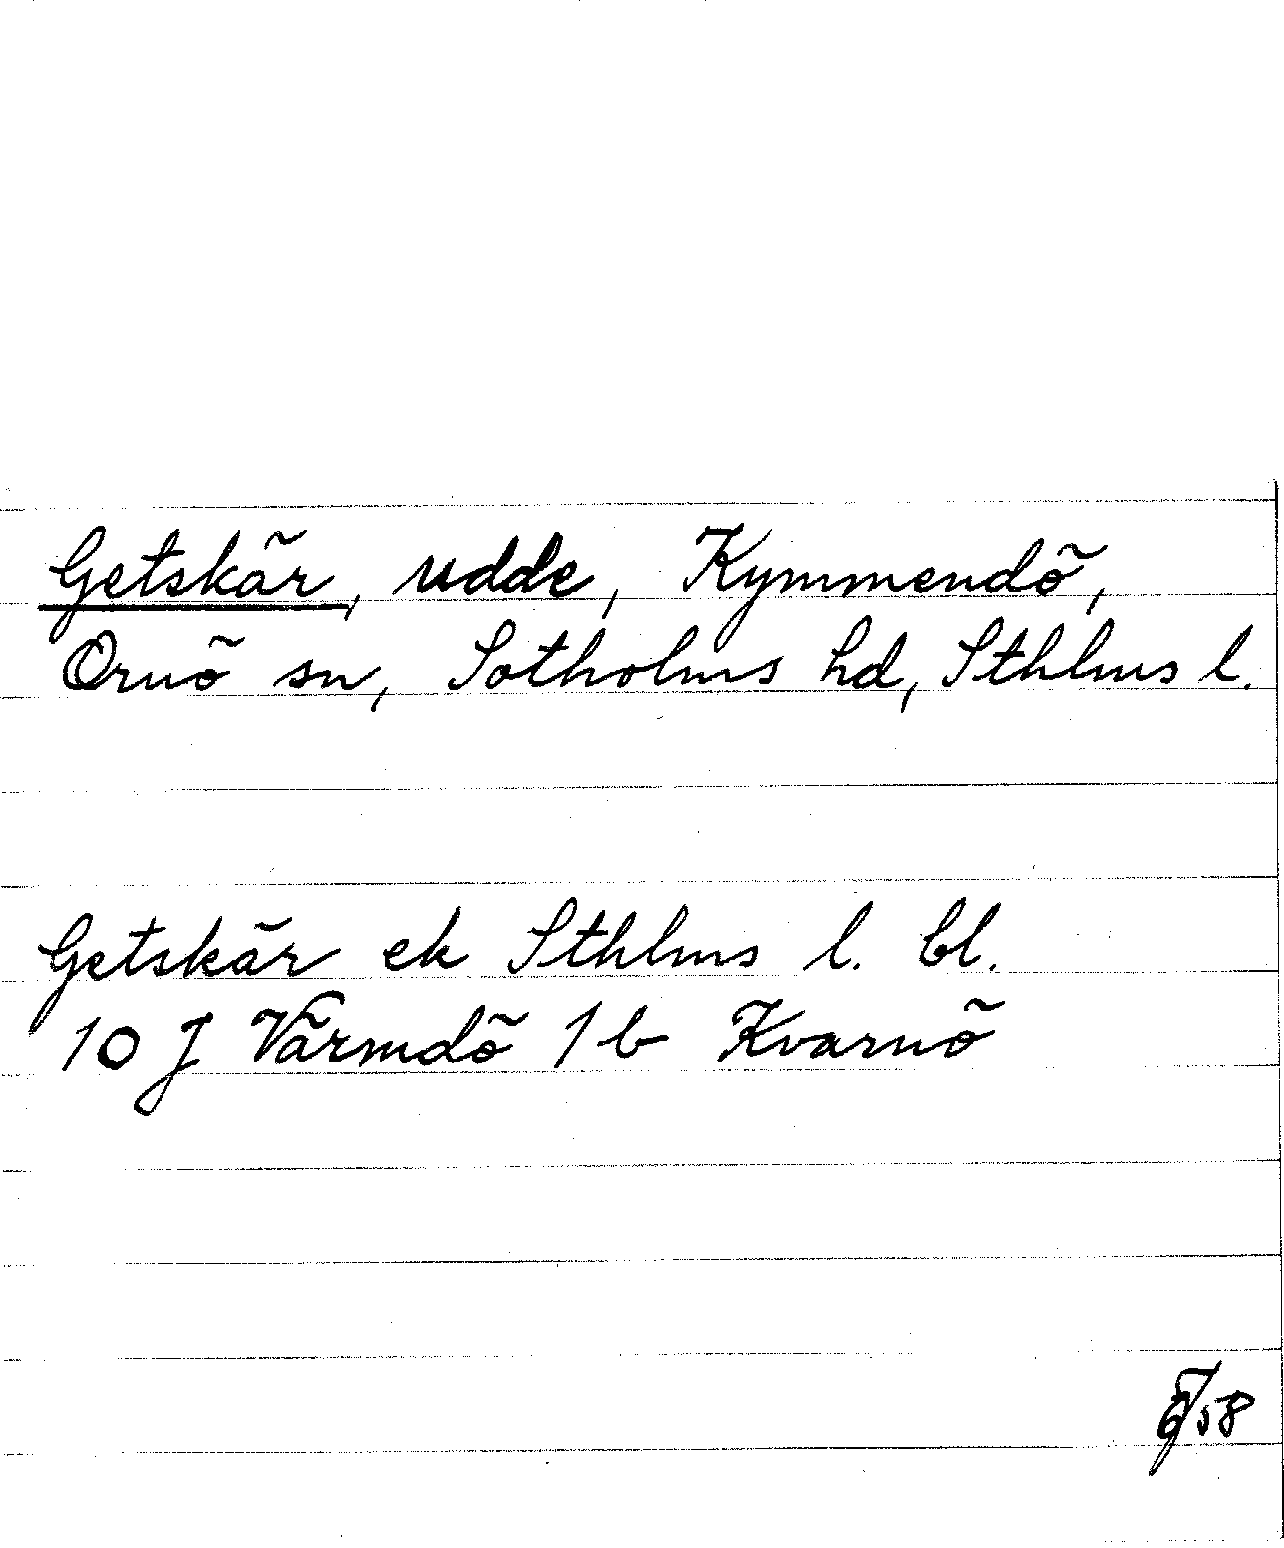 Getskär, udde, Kymmendö,
Ornö sn, Sotholms hd, Sthlms l.
Getskär ek Sthlms l. bl.
10 J Värmdö 1 b Kvarnö
58